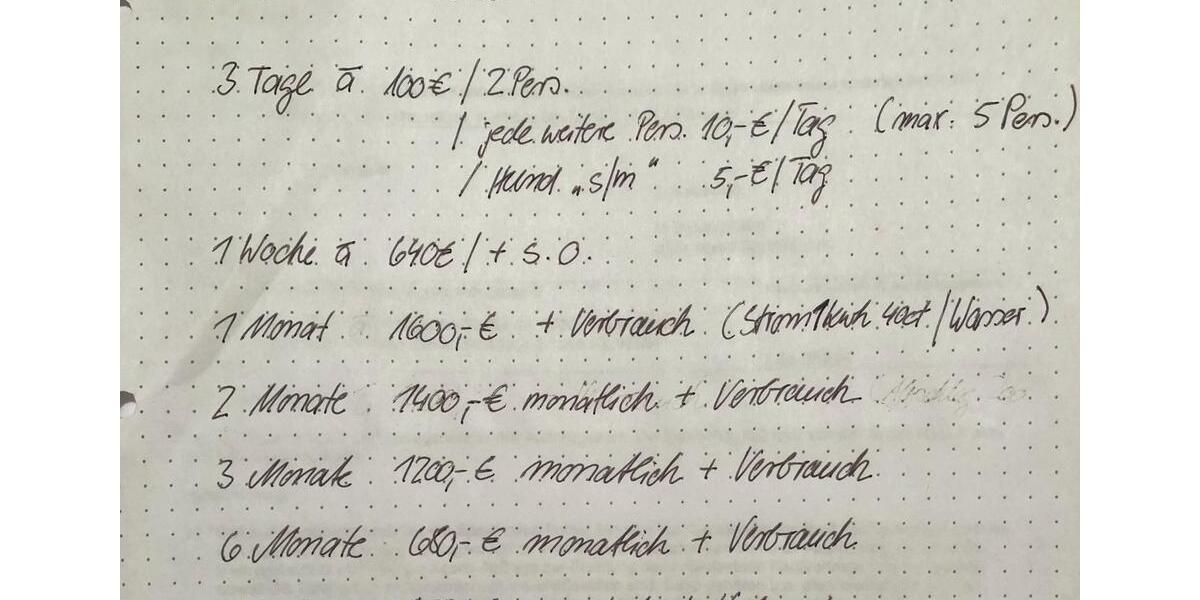 3 Tage à 100€ / 2 Pers.
/ jede weitere Pers. 10,-€/Tag (max. 5 Pers.)
/ Hund „s/m“ 5,-€/Tag
1 Woche à 640€ / + s.o.
1 Monat 1600,-€ + Verbrauch (Strom 1kwh 40ct./Wasser)
2 Monate 1400,-€ monatlich + Verbrauch
3 Monate 1200,-€ monatlich + Verbrauch
6 Monate 680,-€ monatlich + Verbrauch